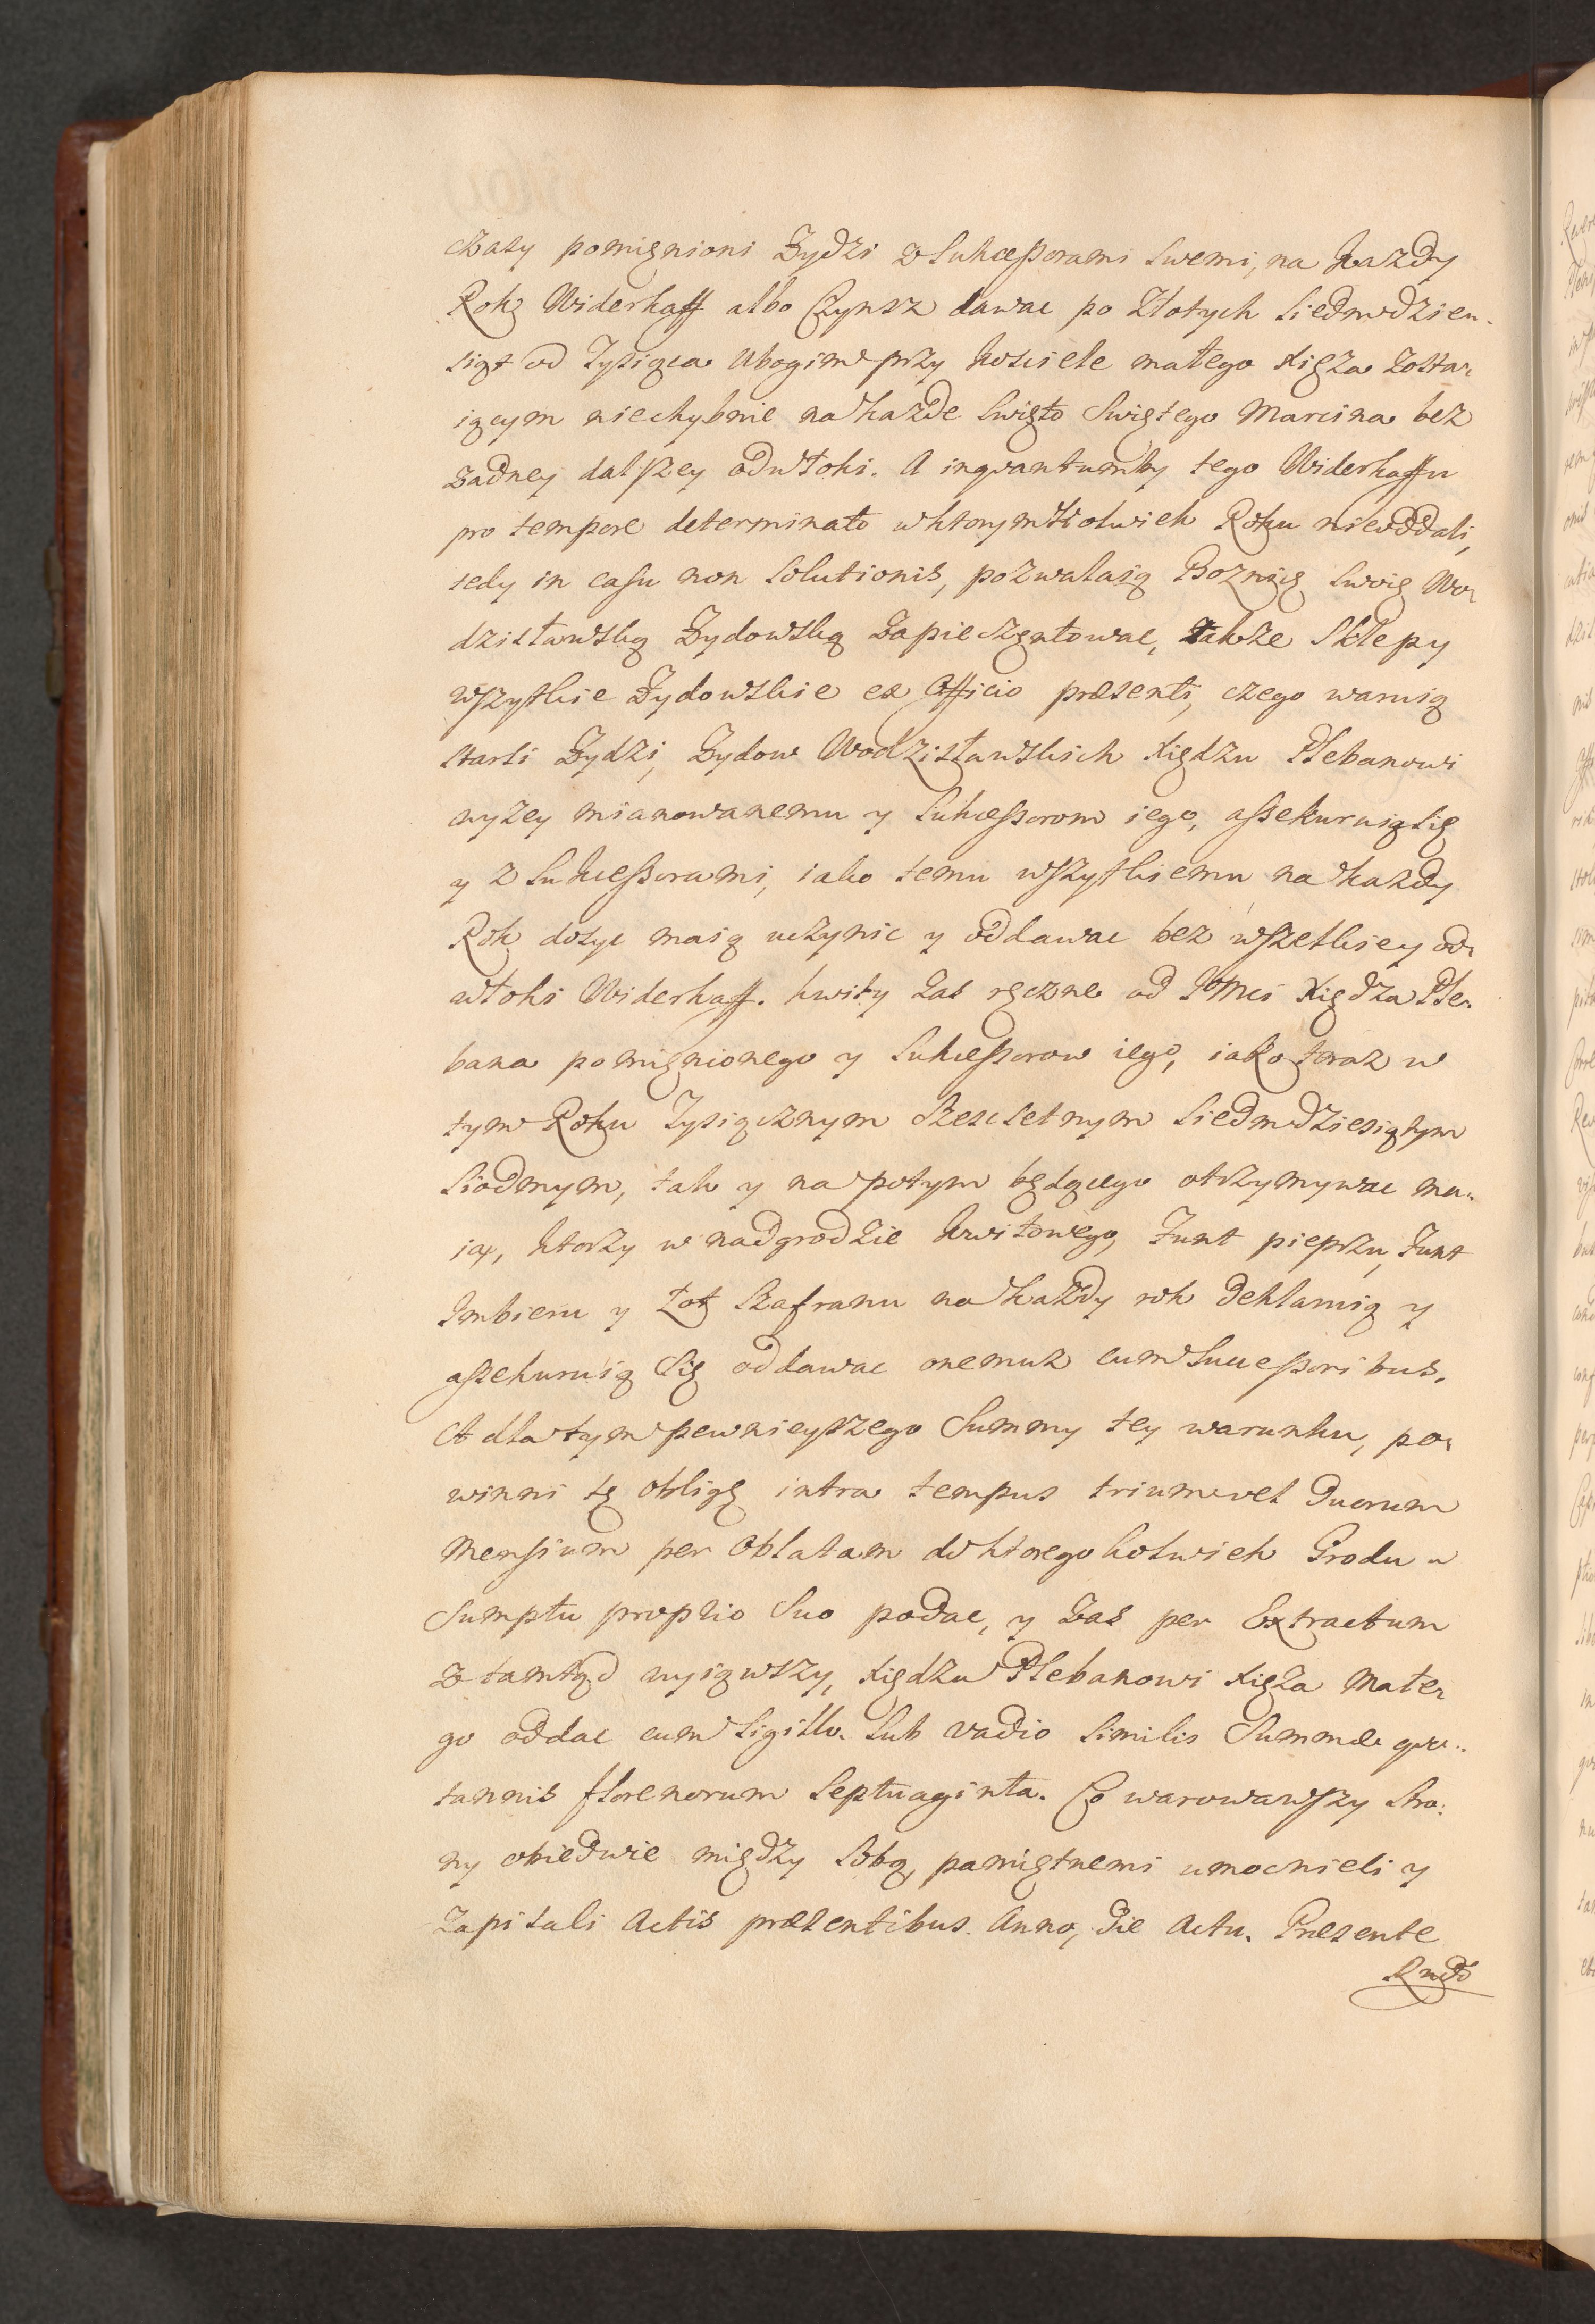 czasy pomięnioni Zydzi z Sukcessorami swemi, na kazdy
Rok Widerkaff albo Czynsz dawac po Złotych siedmdzie-
siąt od Tysiąca Ubogim przy kosciele małego Xięza zosta-
iącym niechybnie na kazde Swięto Swiętego Marcina bez
zadney dalszey odwłoki. A inqvantumby tego Widerkaffu
pro tempore determinato w ktorymkolwiek Roku nieoddali,
tedy in casu non Solutionis, pozwalaią Boznicę swoię Wo-
dzisławską Zydowską Zapieczętowac, także Sklepy
wszystkie Zydowskie ex Officio præsenti, czego waruią
starsi Zydzi, Zydow Wodzisławskich Xiędzu Plebanowi
wyzey mianowanemu y Sukcessorom iego, assekuruią się
y z Sukcessorami, iako temu wszystkiemu na kazdy
Rok dosyc maią uczynic y oddawac bez wszelkiey od-
włoki Widerkaff. kwity zas ręczne od JoMci Xiędza Ple-
bana pomięnionego y Sukcessorow iego, iako teraz w
tym Roku Tysiącznym szescsetnym siedmdziesiątym
siodmym, tak y na potym będącego otrzymywac ma-
ią, ktorzy w nadgrodzie kwitowego, Funt pieprzu, Funt
Imbieru y Łot Szafranu na kazdy rok deklaruią y
assekuruią się oddawac onemuz cum Successoribus.
A dla tym pewnieyszego Summy tey warunku, po-
winni tę obligę intra tempus trium vel duorum
Mensium per Oblatam do ktoregokolwiek Grodu
Sumptu proprio Suo podac, y zas per Extractum
z tamtąd wyiąwszy, Xiędzu Plebanowi Xięza Małe-
go oddac cum Sigillo. Sub vadio similis Summæ qvo-
tannis florenorum Septuaginta. Co warowawszy stro-
ny obiedwie między sobą, pamiętnemi umocnieli y
Zapisali Actis præsentibus. Anno, die Actu. Præsente
Rndo